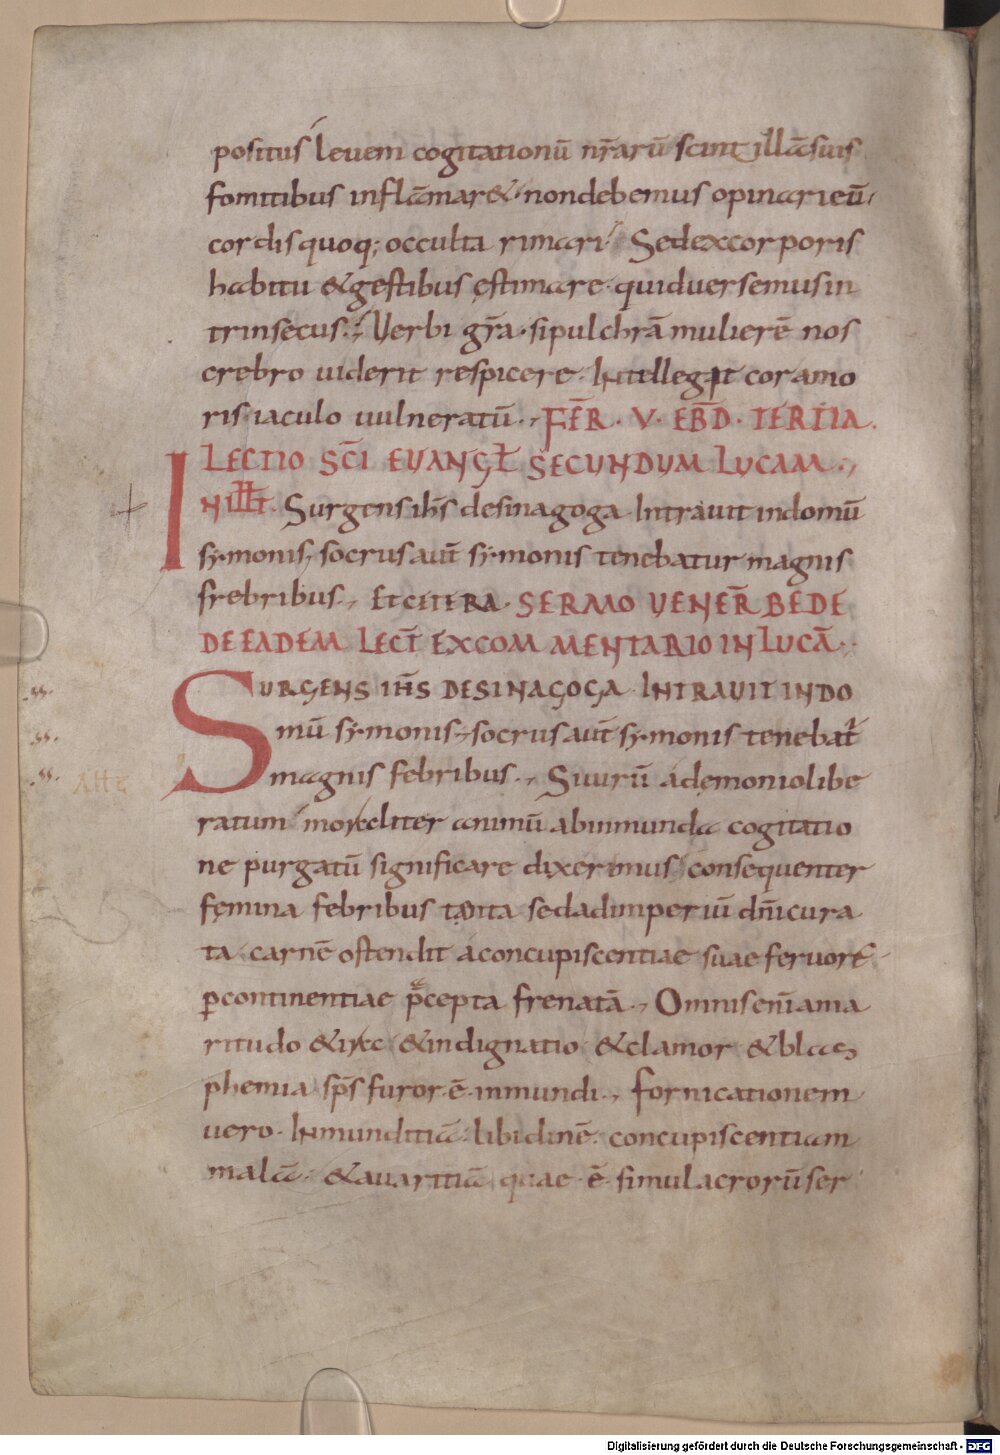 positus levem cogitationū nr̄arū scintillā suis
fomitibus inflāmare & non debemus opinari eū.
cordis quoq; occulta rimari. Sed ex corporis
habitu & gestibus ęstimare. quid versemus in
trinsecus. Verbi gr̄a. si pulchrā mulierē nos
crebro viderit respicere. Intellegit cor amo
ris iaculo vulneratū. FĒR. V. EBD̄. TERTIA.
LECTIO SC̄I EVANGL̄ SECUNDUM LUCAM.
IN ILL̄T. Surgens ih̄s de sinagoga Intravit in domū
symonis, socrus aut̄ symonis tenebatur magnis
febribus. ET CETERA. SERMO VENER̄ BEDE
DE EADEM LECT̄ EX COMMENTARIO IN LUCĀ.
SURGENS IH̄S DE SINAGOGA INTRAVIT IN DO
mū symonis, socrus aut̄ symonis tenebat̄
magnis febribus. Si virū a dęmonio libe
ratum moraliter animū ab inmunda cogitatio
ne purgatū significare diximus consequenter
fęmina febribus tenta sed ad imperiū dn̄i cura
ta carnē ostendit a concupiscentiae suae fervore
ꝑ continentiae p̄cepta frenatā. Omnis enī ama
ritudo & ira & indignatio & clamor & blas
phemia sp̄s furor ē inmundi. fornicationem
vero. Inmunditiā. libidinē. concupiscentiam
malā. & avaritiā quae ē simulacrorū ser
Digitalisierung gefördert durch die Deutsche Forschungsgemeinschaft - DFG